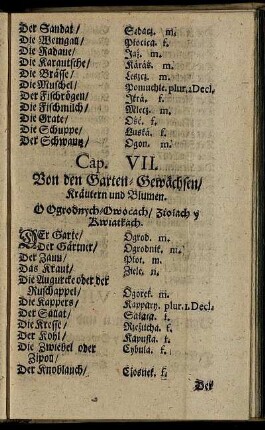 Der Sandat/ Sędacz. m.
Die Weingall/ Płocica. f.
Die Kadaue/ Jaź. m.
Die Karautsche/ Karáś. m.
Die Brässe/ Leszcz. m.
Die Muschel/ Pomuchle. plur. 1 Decl.
Der Fischrögen/ Ikrá. f.
Die Fischmilch/ Mlecz. m.
Die Grate/ Ość. f.
Die Schuppe/ Łuská. f.
Der Schwantz/ Ogon. m.
Cap. VII.
Von den Garten-Gewächsen/
Kräutern und Blumen.
O Ogrodnych-Owocach/ Ziołach y
Kwiatkach.
DEr Garte/ Ogrod. m.
Der Gärtner/ Ogrodnik. m.
Der Zaun/ Płot. m.
Das Kraut/ Ziele. n.
Die Augurcke oder der
Ruschappel/ Ogorek. m.
Die Kappers/ Kápary. plur. 1. Decl.
Der Sallat/ Sáłátá. f.
Die Kresse/ Rzeżucha. f.
Der Kohl/ Kápustá. f.
Die Zwiebel oder Cybula. f.
Zipoll/
Der Knoblauch/ Czosnek. f.
Der